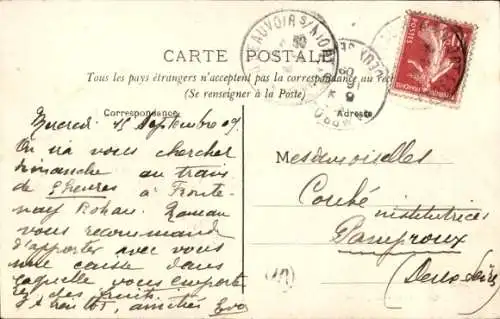 AUVOIRS/NIORT
CARTE POSTALE
POSTES
Tous les pays étrangers n'acceptent pas la correspondance au
(Se renseigner à la Poste)
Correspondance
Adresse
Mercredi 15 Septembre 09.
On ira vous chercher
dimanche au train
de 6 heures à Fronte-
nay Rohan. Maman
vous recommande
d'apporter avec vous
une caisse dans
laquelle vous emporte-
rez des fruits.
A bientôt, amitiés Eva
Mesdemoiselles
Coubé
institutrices
Pamproux
(Deux-Sèvres)